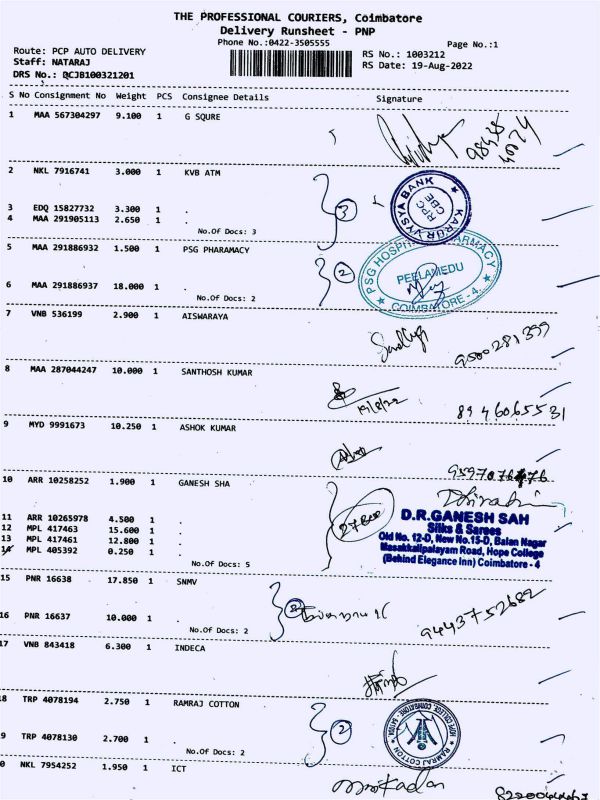 THE PROFESSIONAL COURIERS, Coimbatore
Delivery Runsheet - PNP
Phone No.:0422-3505555
Page No.:1
Route: PCP AUTO DELIVERY
Staff: NATARAJ
DRS No.: QCJB100321201
RS No.: 1003212
RS Date: 19-Aug-2022
S No Consignment No Weight PCS Consignee Details Signature
1 MAA 567304297 9.100 1 G SQURE
2 NKL 7916741 3.000 1 KVB ATM
3 EDQ 15827732 3.300 1 .
4 MAA 291905113 2.650 1 .
No.Of Docs: 3
3
KARUR VYSYA BANK
RPC
CBE
5 MAA 291886932 1.500 1 PSG PHARAMACY
6 MAA 291886937 18.000 1 .
No.Of Docs: 2
2
PSG HOSPITAL PHARMACY
PEELAMEDU
COIMBATORE - 4.
7 VNB 536199 2.900 1 AISWARAYA
9500281399
8 MAA 287044247 10.000 1 SANTHOSH KUMAR
19/8/22
8946065531
9 MYD 9991673 10.250 1 ASHOK KUMAR
10 ARR 10258252 1.900 1 GANESH SHA
11 ARR 10265978 4.500 1 .
12 MPL 417463 15.600 1 .
13 MPL 417461 12.800 1 .
14 MPL 405392 0.250 1 .
No.Of Docs: 5
D.R.GANESH SAH
Silks & Sarees
Old No. 12-D, New No.15-D, Balan Nagar
Masakkalipalayam Road, Hope College
(Behind Elegance Inn) Coimbatore - 4
15 PNR 16638 17.850 1 SNMV
16 PNR 16637 10.000 1 .
No.Of Docs: 2
2
9443752682
17 VNB 843418 6.300 1 INDECA
18 TRP 4078194 2.750 1 RAMRAJ COTTON
9 TRP 4078130 2.700 1 .
No.Of Docs: 2
2
RAMRAJ COTTON
0 NKL 7954252 1.950 1 ICT